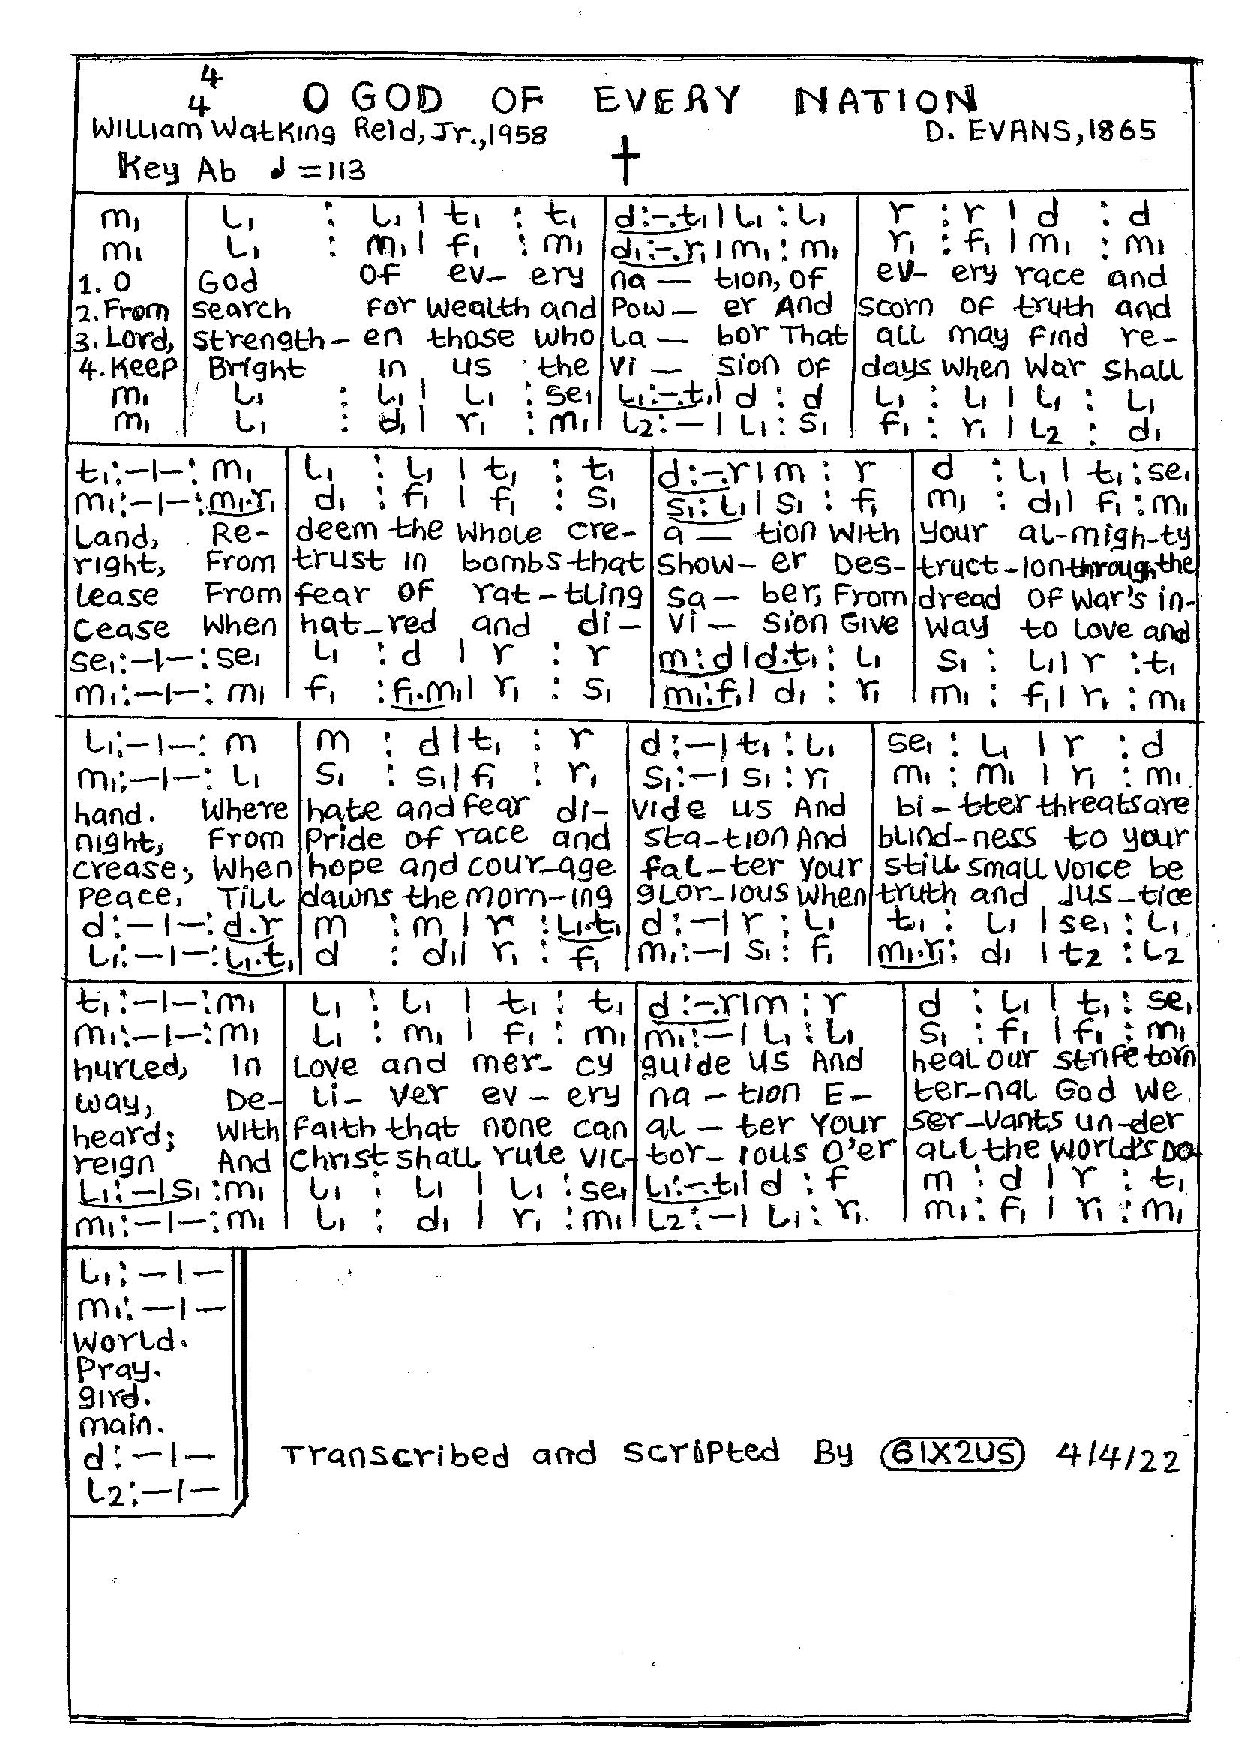 4
4 O GOD OF EVERY NATION
William Watking Reid, Jr.,1958 D. EVANS,1865
Key Ab ♩=113 †
m₁ | l₁ : l₁ | t₁ : t₁ | d:-.t₁ | l₁ : l₁ | r : r | d : d
m₁ | l₁ : m₁ | f₁ : m₁ | d₁:-.r₁ | m₁ : m₁ | r₁ : f₁ | m₁ : m₁
1. O God OF ev- ery na — tion, of ev- ery race and
2. From search For wealth and Pow — er And scorn of truth and
3. Lord, strength- en those who La — bor That all may find re-
4. Keep Bright in us the vi — sion of days when War Shall
m₁ | l₁ : l₁ | l₁ : se₁ | l₁:-.t₁ | d : d | l₁ : l₁ | l₁ : l₁
m₁ | l₁ : d₁ | r₁ : m₁ | l₂:- | l₁ : s₁ | f₁ : r₁ | l₂ : d₁
t₁:-|-: m₁ | l₁ : l₁ | t₁ : t₁ | d:-.r | m : r | d : l₁ | t₁ : se₁
m₁:-|-:m₁.r₁ | d₁ : f₁ | f₁ : s₁ | s₁:l₁ | s₁ : f₁ | m₁ : d₁ | f₁ : m₁
Land, Re- deem the whole cre- a — tion with your al-migh-ty
right, From trust in bombs that show- er Des- truct-ion through the
Lease From fear of rat-tling sa- ber, From dread of war's in-
cease when hat-red and di- vi- sion Give way to love and
se₁:-|-: se₁ | l₁ : d | r : r | m:d | d.t₁ : l₁ | s₁ : l₁ | r : t₁
m₁:-|-: m₁ | f₁ : f₁.m₁ | r₁ : s₁ | m₁:f₁ | d₁ : r₁ | m₁ : f₁ | r₁ : m₁
l₁:-|-: m | m : d | t₁ : r | d:- | t₁ : l₁ | se₁ : l₁ | r : d
m₁:-|-: l₁ | s₁ : s₁ | f₁ : r₁ | s₁:- | s₁ : r₁ | m₁ : m₁ | r₁ : m₁
hand. Where hate and fear di- vide us And bi-tter threats are
night, From Pride of race and sta-tion And blind-ness to your
crease, When hope and cour-age fal-ter your still small voice be
Peace, Till dawns the morn-ing glor-ious when truth and Jus-tice
d:-|-:d.r | m : m | r : l₁.t₁ | d:- | r : l₁ | t₁ : l₁ | se₁ : l₁
l₁:-|-:l₁.t₁ | d : d₁ | r₁ : f₁ | m₁:- | s₁ : f₁ | m₁.r₁ : d₁ | t₂ : l₂
t₁:-|-:m₁ | l₁ : l₁ | t₁ : t₁ | d:-.r | m : r | d : l₁ | t₁ : se₁
m₁:-|-:m₁ | l₁ : m₁ | f₁ : m₁ | m₁:- | l₁ : l₁ | s₁ : f₁ | f₁ : m₁
hurled, In Love and mer- cy guide us And heal our strife torn
way, De- li- ver ev- ery na-tion E- ter-nal God we
heard; With faith that none can al- ter Your ser-vants un-der
reign And Christ shall rule vic- tor- ious O'er all the world's Do
l₁:-|s₁ :m₁ | l₁ : l₁ | l₁ : se₁ | l₁:-.t₁ | d : f | m : d | r : t₁
m₁:-|-:m₁ | l₁ : d₁ | r₁ : m₁ | l₂:- | l₁ : r₁ | m₁ : f₁ | r₁ : m₁
l₁:-|-
m₁:-|-
World.
Pray.
gird.
main.
d:-|- Transcribed and scripted By 61X2US 4/4/22
l₂:-|-